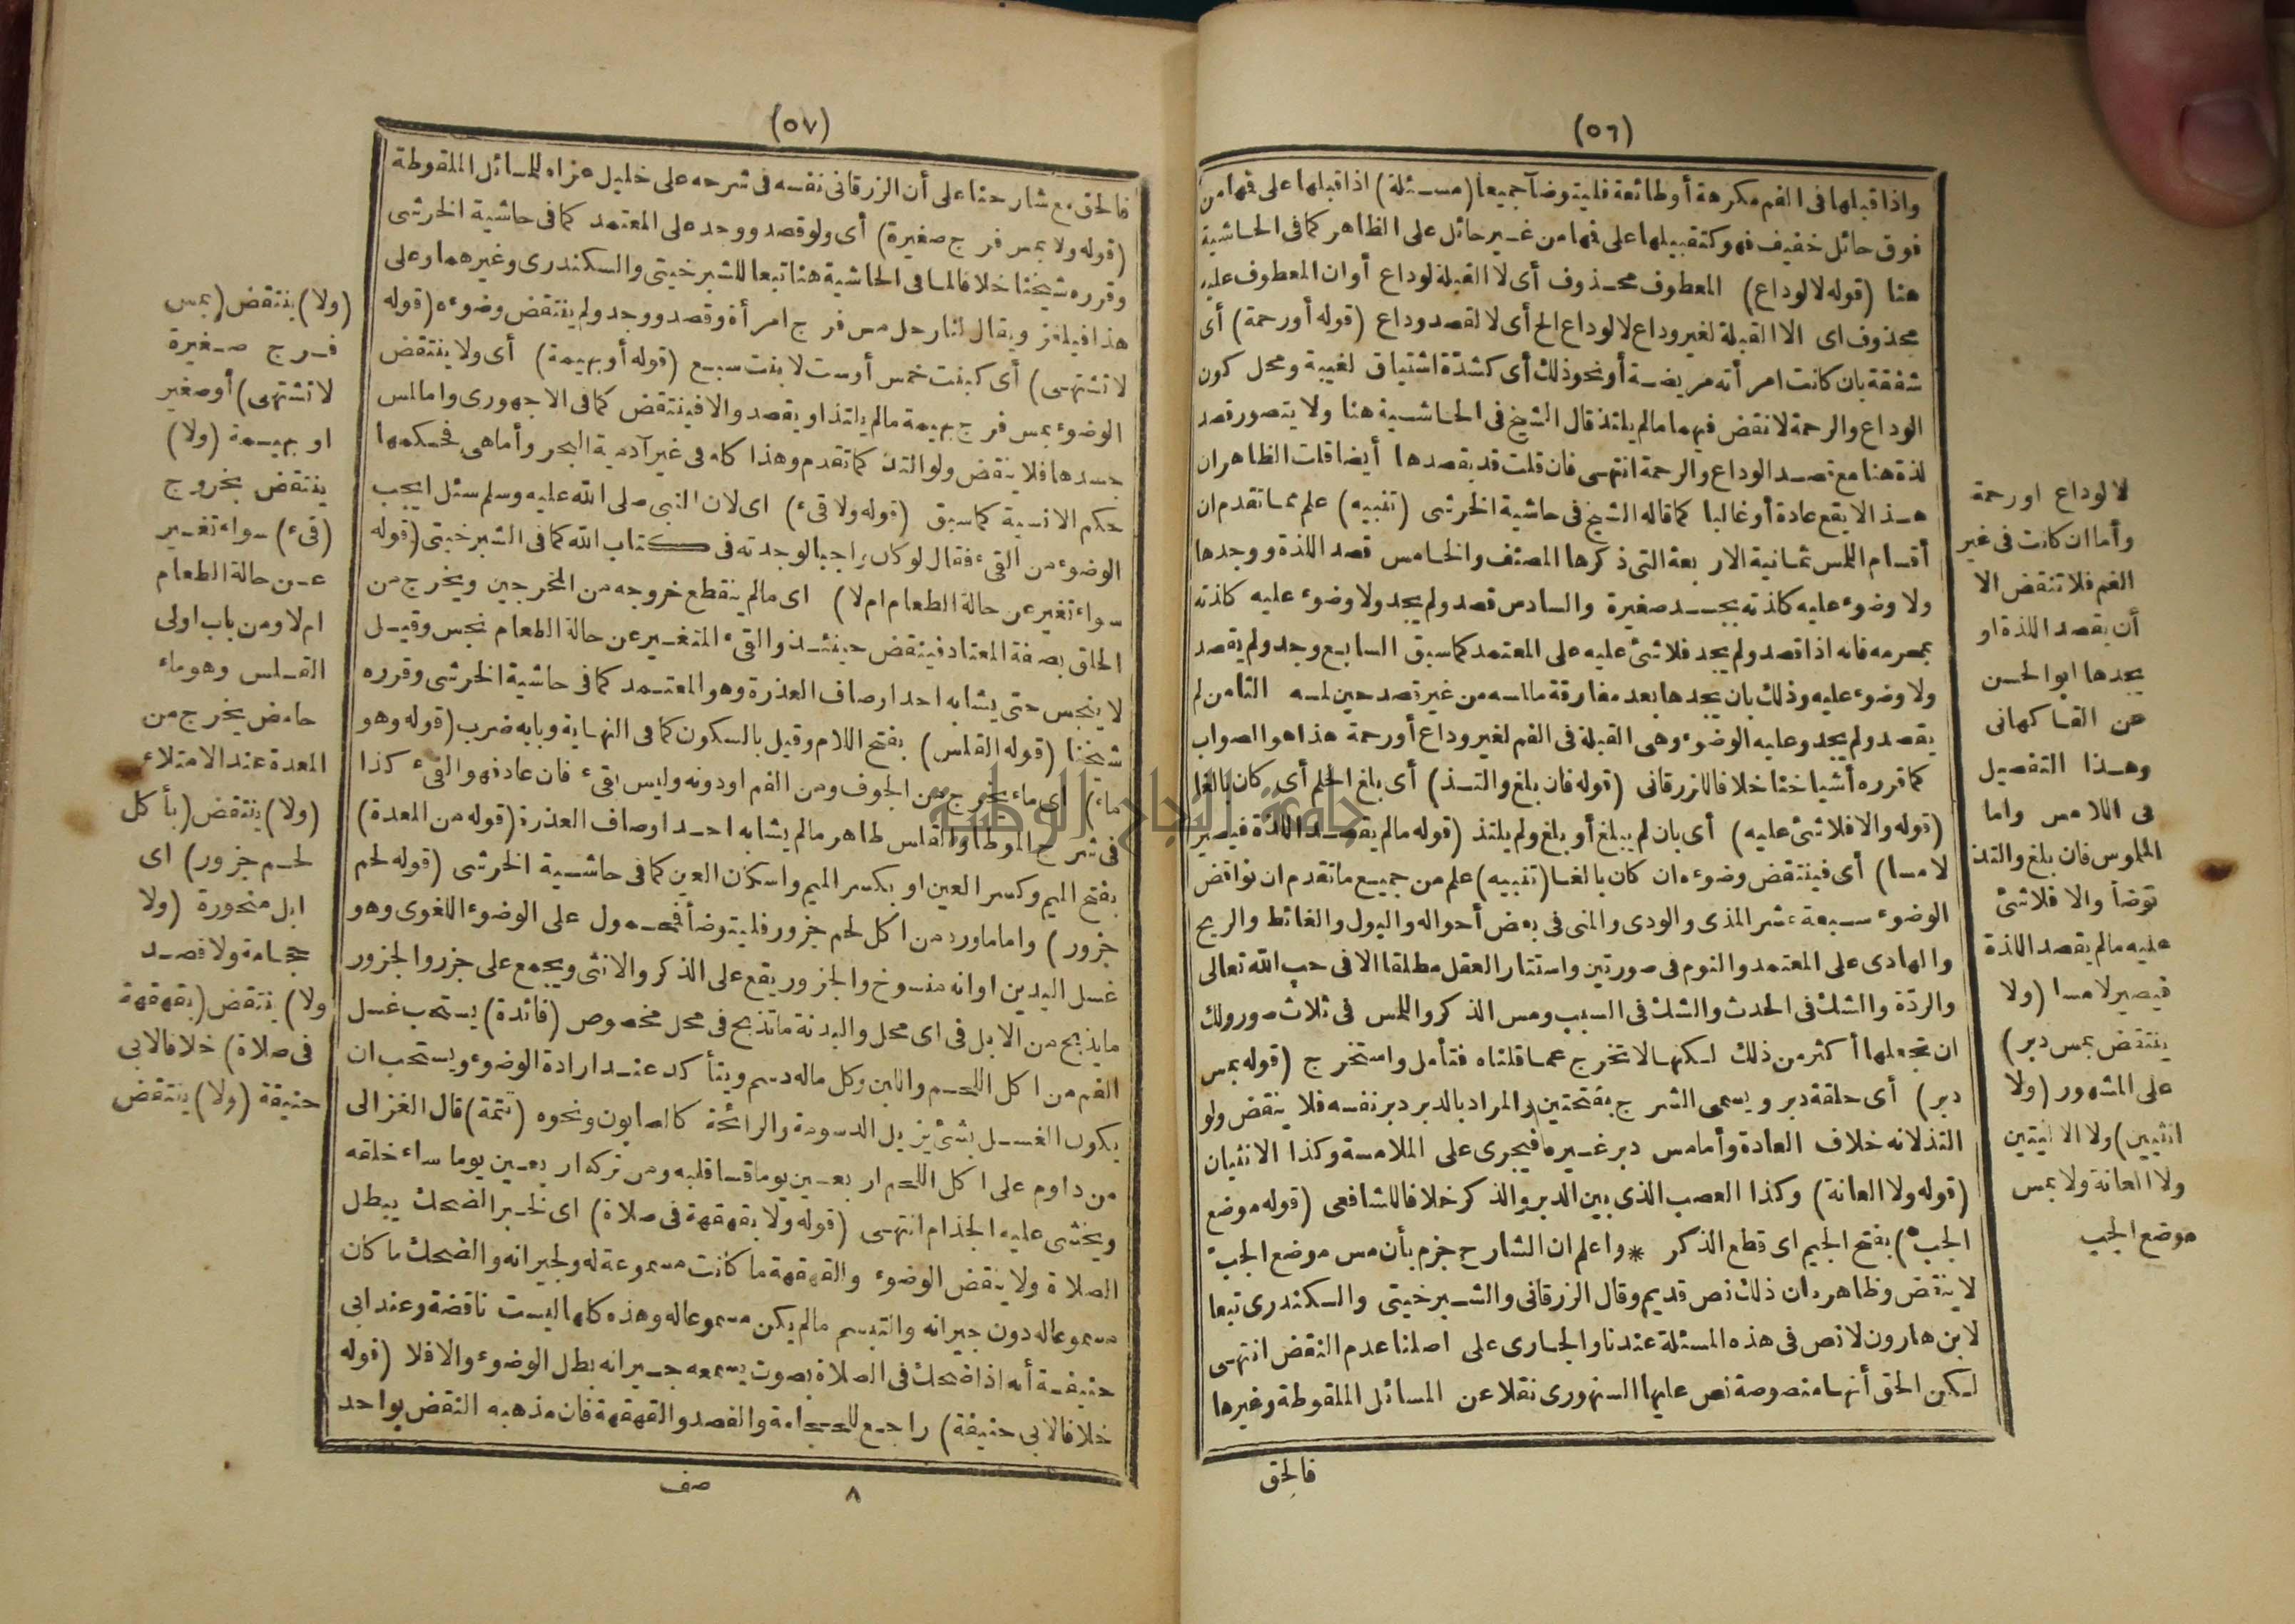 (٥٦)
واذا قبلها فى الفم مكرهة أو طائعة فليتوضآ جميعا (مسئلة) اذا قبلها على فها من
فوق حائل خفيف فهو كتقبيلها على فها من غير حائل على الظاهر كما فى الحاشية
هنا (قوله لا لوداع) المعطوف محذوف أى لا القبلة لوداع أو ان المعطوف عليه
محذوف اى الا القبلة لغير وداع لا لوداع الخ أى لا لقصد وداع (قوله أو رحمة) أى
شفقة بان كانت امرأته مريضة أو نحو ذلك أى كشدّة اشتياق لغيبة ومحل كون
الوداع والرحمة لا نقض فيهما ما لم يلتذ قال الشيخ فى الحاشية هنا ولا يتصور قصد
لذة هنا مع قصد الوداع والرحمة انتهى فان قلت قد يقصدها أيضا قلت الظاهر ان
هذا لا يقع عادة أو غالبا كما قاله الشيخ فى حاشية الخرشى (تنبيه) علم مما تقدم ان
أقسام اللمس ثمانية الاربعة التى ذكرها المصنف والخامس قصد اللذة ووجدها
ولا وضوء عليه كلذته بجسد صغيرة والسادس قصد ولم يجد ولا وضوء عليه كلذته
بمحرمه فانه اذا قصد ولم يجد فلا شئ عليه على المعتمد كما سبق السابع وجد ولم يقصد
ولا وضوء عليه وذلك بان يجدها بعد مفارقة ما لمسه من غير قصد حين لمسه الثامن لم
يقصد ولم يجد وعليه الوضوء وهى القبلة فى الفم لغير وداع أو رحمة هذا هو الصواب
كما قرره أشياخنا خلافا للزرقانى (قوله فان بلغ والتذ) أى بلغ الحلم أى كان بالغا
(قوله والا فلا شئ عليه) أى بان لم يبلغ أو بلغ ولم يلتذ (قوله ما لم يقصد اللذة فيصير
لامسا) أى فينتقض وضوءه ان كان بالغا (تنبيه) علم من جميع ما تقدم ان نواقض
الوضوء سبعة عشر المذى والودى والمنى فى بعض أحواله والبول والغائط والريح
والهادى على المعتمد والنوم فى صورتين واستتار العقل مطلقا الا فى حب الله تعالى
والردّة والشك فى الحدث والشك فى السبب ومس الذكر واللمس فى ثلاث صور ولك
ان تجعلها أكثر من ذلك لكنها لا تخرج عما قلناه فتأمل واستخرج (قوله بمس
دبر) أى حلقة دبر ويسمى الشرج بفتحتين والمراد بالدبر دبر نفسه فلا ينقض ولو
التذ لانه خلاف العادة وأما مس دبر غيره فيجرى على الملامسة وكذا الانثيان
(قوله ولا العانة) وكذا العصب الذى بين الدبر والذكر خلافا للشافعى (قوله موضع
الجب) بفتح الجيم اى قطع الذكر * واعلم ان الشارح جزم بأن مس موضع الجب
لا ينقض وظاهره ان ذلك نص قديم وقال الزرقانى والشبرخيتى والسكندرى تبعا
لابن هارون لا نص فى هذه المسئلة عندنا والجارى على اصلنا عدم النقض انتهى
لكن الحق أنها منصوصة نص عليها السنهورى نقلا عن المسائل الملقوطة وغيرها
فالحق
لا لوداع او رحمة
وأما ان كانت فى غير
الفم فلا تنقض الا
أن يقصد اللذة او
يجدها ابو الحسن
عن الفاكهانى
وهذا التفصيل
فى اللامس واما
الملموس فان بلغ والتذ
توضأ والا فلا شئ
عليه ما لم يقصد اللذة
فيصير لامسا (ولا
ينتقض بمس دبر)
على المشهور (ولا
انثيين) ولا الاليتين
ولا العانة ولا بمس
موضع الجب
(٥٧)
فالحق مع شارحنا على أن الزرقانى نفسه فى شرحه على خليل عزاه للمسائل الملقوطة
(قوله ولا بمس فرج صغيرة) أى ولو قصد ووجد على المعتمد كما فى حاشية الخرشى
وقرره شيخنا خلافا لما فى الحاشية هنا تبعا للشبرخيتى والسكندرى وغيرهما وعلى
هذا فيلغز ويقال لنا رجل مس فرج امرأة وقصد ووجد ولم ينتقض وضوءه (قوله
لا تشتهى) أى كبنت خمس أو ست لا بنت سبع (قوله أو بهيمة) أى ولا ينتقض
الوضوء بمس فرج بهيمة ما لم يلتذ او يقصد والا فينتقض كما فى الاجهورى واما لمس
جسدها فلا ينقض ولو التذ كما تقدم وهذا كله فى غير آدمية البحر وأما هى فحكمها
حكم الانسية كما سبق (قوله ولا قىء) اى لان النبى صلى الله عليه وسلم سئل ايجب
الوضوء من القىء فقال لو كان واجبا لوجدته فى كتاب الله كما فى الشبرخيتى (قوله
سواء تغير عن حالة الطعام ام لا) اى ما لم ينقطع خروجه من المخرجين ويخرج من
الحلق بصفة المعتاد فينقض حينئذ والقىء المتغير عن حالة الطعام نجس وقيل
لا ينجس حتى يشابه احد اوصاف العذرة وهو المعتمد كما فى حاشية الخرشى وقرره
شيخنا (قوله القلس) بفتح اللام وقيل بالسكون كما فى النهاية وبابه ضرب (قوله وهو
ماء) اى ماء يخرج من الجوف ومن الفم او دونه وليس بقىء فان عاد فهو القىء كذا
فى شرح الموطا والقلس طاهر ما لم يشابه احد اوصاف العذرة (قوله من المعدة)
بفتح الميم وكسر العين او بكسر الميم واسكان العين كما فى حاشية الخرشى (قوله لحم
جزور) واما ما ورد من اكل لحم جزور فليتوضأ فمحمول على الوضوء اللغوى وهو
غسل اليدين او انه منسوخ والجزور يقع على الذكر والانثى ويجمع على جزر والجزور
ما يذبح من الابل فى اى محل والبدنة ما تذبح فى محل مخصوص (فائدة) يستحب غسل
الفم من اكل اللحم واللبن وكل ماله دسم ويتأكد عند ارادة الوضوء ويستحب ان
يكون الغسل بشئ يزيل الدسومة والرائحة كالصابون ونحوه (تتمة) قال الغزالى
من داوم على اكل اللحم اربعين يوما قسا قلبه ومن تركه اربعين يوما ساء خلقه
ويخشى عليه الجذام انتهى (قوله ولا بقهقهة فى صلاة) اى لخبر الضحك يبطل
الصلاة ولا ينقض الوضوء والقهقهة ما كانت مسموعة له ولجيرانه والضحك ما كان
مسموعا له دون جيرانه والتبسم ما لم يكن مسموعا له وهذه كلها ليست ناقضة وعند ابى
حنيفة أنه اذا ضحك فى الصلاة بصوت يسمعه جيرانه بطل الوضوء والا فلا (قوله
خلافا لابى حنيفة) راجع للحجامة والفصد والقهقهة فان مذهبه النقض بواحد
٨ صف
(ولا) ينتقض (بمس
فرج صغيرة
لا تشتهى) أو صغير
او بهيمة (ولا)
ينتقض بخروج
(قىء) سواء تغير
عن حالة الطعام
ام لا ومن باب اولى
القلس وهو ماء
حامض يخرج من
المعدة عند الامتلاء
(ولا) ينتقض (بأكل
لحم جزور) اى
ابل منحورة (ولا
حجامة ولا فصد
ولا) ينتقض (بقهقهة
فى صلاة) خلافا لابى
حنيفة (ولا) ينتقض
جامعة النجاح الوطنية